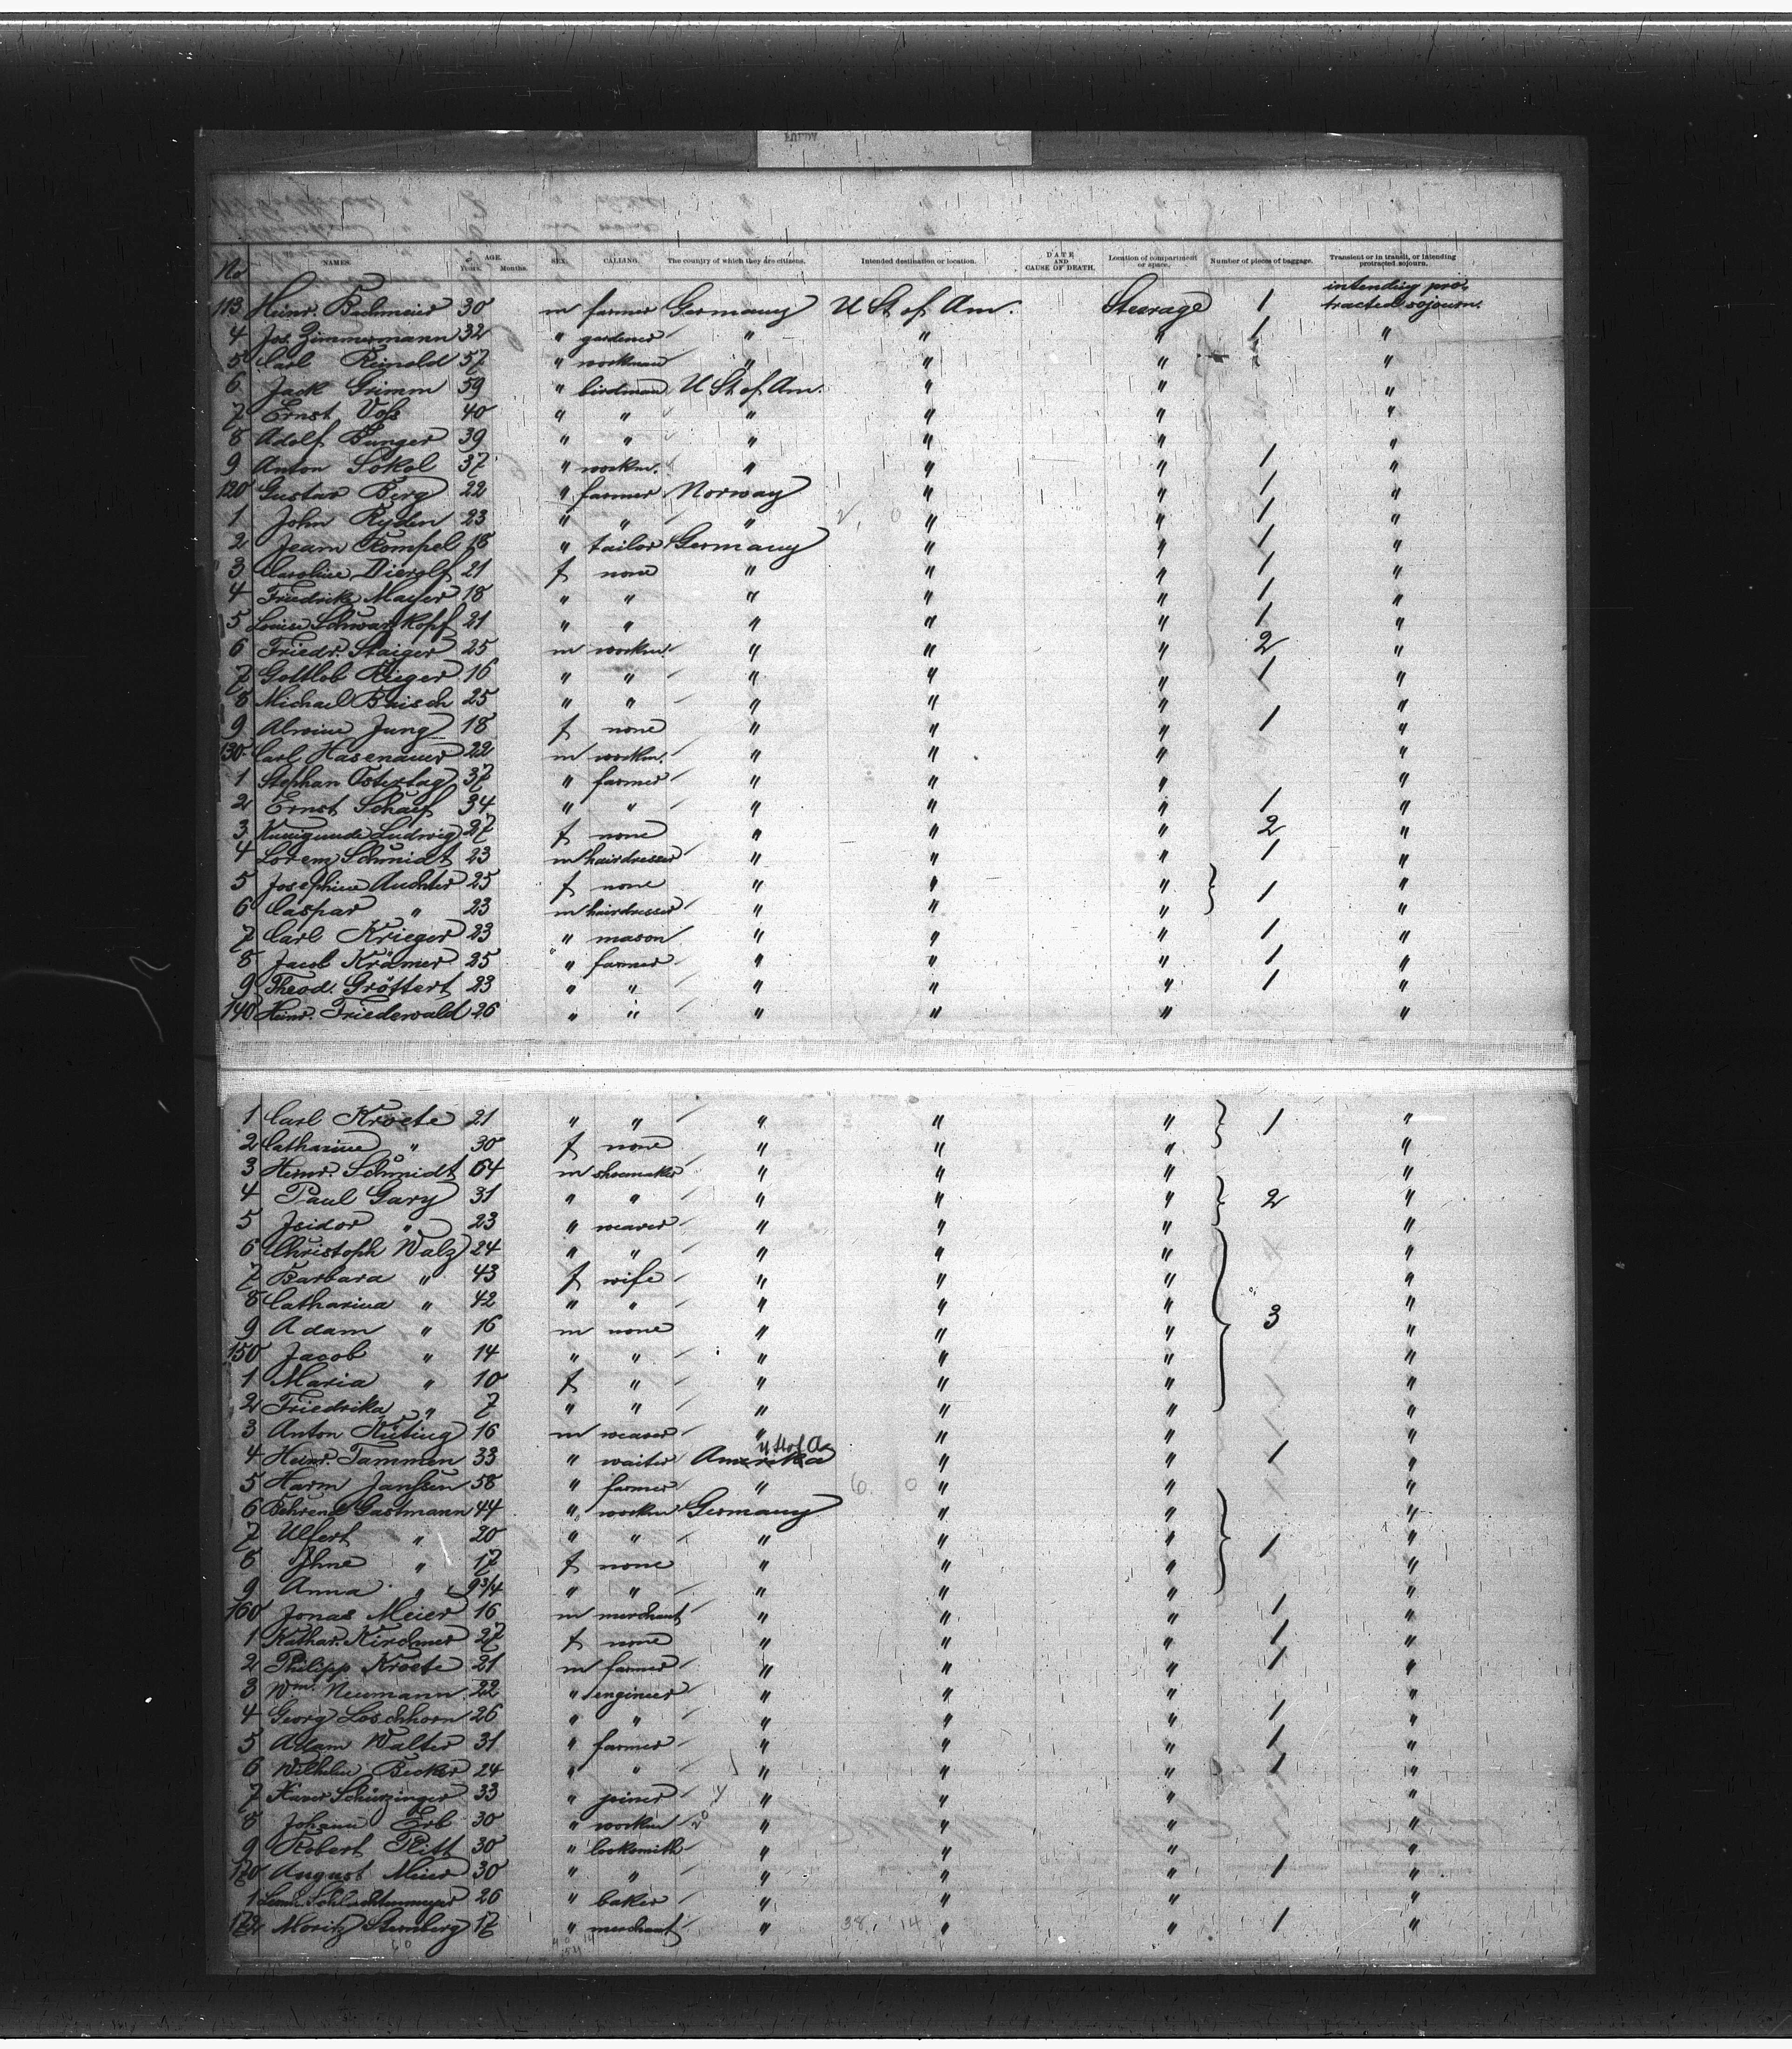 No NAMES. AGE. Years. Months. SEX. CALLING. The country of which they are citizens. Intended destination or location. DATE AND CAUSE OF DEATH. Location of compartment or space. Number of pieces of baggage. Transient or in transit, or intending protracted sojourn.
113 Heinr. Bachmeier 30 m farmer Germany U St of Am. Steerage 1 intending protracted sojourn.
4 Jos. Zimmermann 32 " gardener " " " 1 "
5 Carl Reinold 57 " workman " " " "
6 Jack Grimm 59 " birdman U St of Am. " " "
7 Ernst Voss 40 " " " " " "
8 Adolf Bunger 39 " " " " " "
9 Anton Sokol 37 " workm. " " " 1 "
120 Gustav Berg 22 " farmer Norway " " 1 "
1 John Ryden 23 " " " " " 1 "
2 Jean Rompel 18 " tailor Germany " " 1 "
3 Caroline Dierolf 21 f none " " " 1 "
4 Friedrike Mayer 18 " " " " " 1 "
5 Louise Schwarzkopf 21 " " " " " 1 "
6 Friedr. Staiger 25 m workm. " " " 2 "
7 Gottlob Rieger 16 " " " " " 1 "
8 Michael 25 " " " " " "
9 Alwine Jung 18 f none " " " 1 "
130 Carl Hasenauer 22 m workm. " " " "
1 Stephan Ostertag 37 " farmer " " " "
2 Ernst Scharf 34 " " " " " 1 "
3 Kunigunde Ludwig 27 f none " " " 2 "
4 Lorenz Schmidt 23 m hairdresser " " " 1 "
5 Josephine Auchter 25 f none " " " 1 "
6 Caspar " 23 m hairdresser " " " "
7 Carl Krieger 23 " mason " " " 1 "
8 Jacob Krämer 25 " farmer " " " 1 "
9 Theod. Gröttert 23 " " " " " 1 "
140 Heinr. Friedewald 26 " " " " " "
1 Carl Kroete 21 " " " " " 1 "
2 Catharine " 30 f none " " " "
3 Heinr. Schmidt 64 m shoemaker " " " "
4 Paul Gary 31 " " " " " 2 "
5 Isidor " 23 " weaver " " " "
6 Christoph Walz 24 " " " " " "
7 Barbara " 43 f wife " " " "
8 Catharina " 42 " " " " " 3 "
9 Adam " 16 m none " " " "
150 Jacob " 14 " " " " " "
1 Maria " 10 f " " " " "
2 Friedrika " 7 " " " " " "
3 Anton Küting 16 m weaver " " " "
4 Heinr. Tammen 33 " waiter Amerika U St of A " " 1 "
5 Harm Janssen 58 " farmer " 6 0 " " "
6 Behrend Gastmann 44 " workm Germany " " "
7 Ulfert " 20 " " " " " 1 "
8 " 17 f none " " " "
9 Anna " 9 3/4 " " " " " "
160 Jonas Meier 16 m merchant " " " 1 "
1 Kathar. Kirchner 27 f none " " " 1 "
2 Philipp Kroete 21 m farmer " " " 1 "
3 Wm. Neumann 22 " engineer " " " "
4 Georg Loschhorn 26 " " " " " 1 "
5 Adam Walter 31 " farmer " " " 1 "
6 Wilhelm Becker 24 " " " " " 1 "
7 Xaver Schürzinger 33 " joiner " " " "
8 Johann Erb 30 " workm " " " "
9 Robert Pitt 30 " locksmith " " " "
170 August Meier 30 " " " " " 1 "
1 Schlachtenmeyer 26 " baker " " " "
172 Moritz Stromberg 17 " merchant " 38 14 " " 1 "